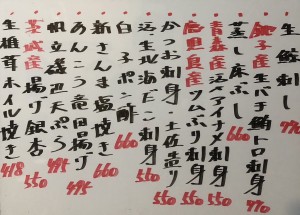 生鯨刺し 770
銚子産生バチ鮪トロ刺身 770
蒸し床ぶし 660
青森産活〆アイナメ刺身 550
鹿児島産ツムブリ刺身 550
かつお刺身・土佐造り 550
活生北海だこ刺身 550
白子ポン酢 660
新さんま塩焼き 660
あんこう竜田揚げ 495
帆立磯辺天ぷら 495
茨城産揚げ銀杏 550
生椎茸ホイル焼き 418